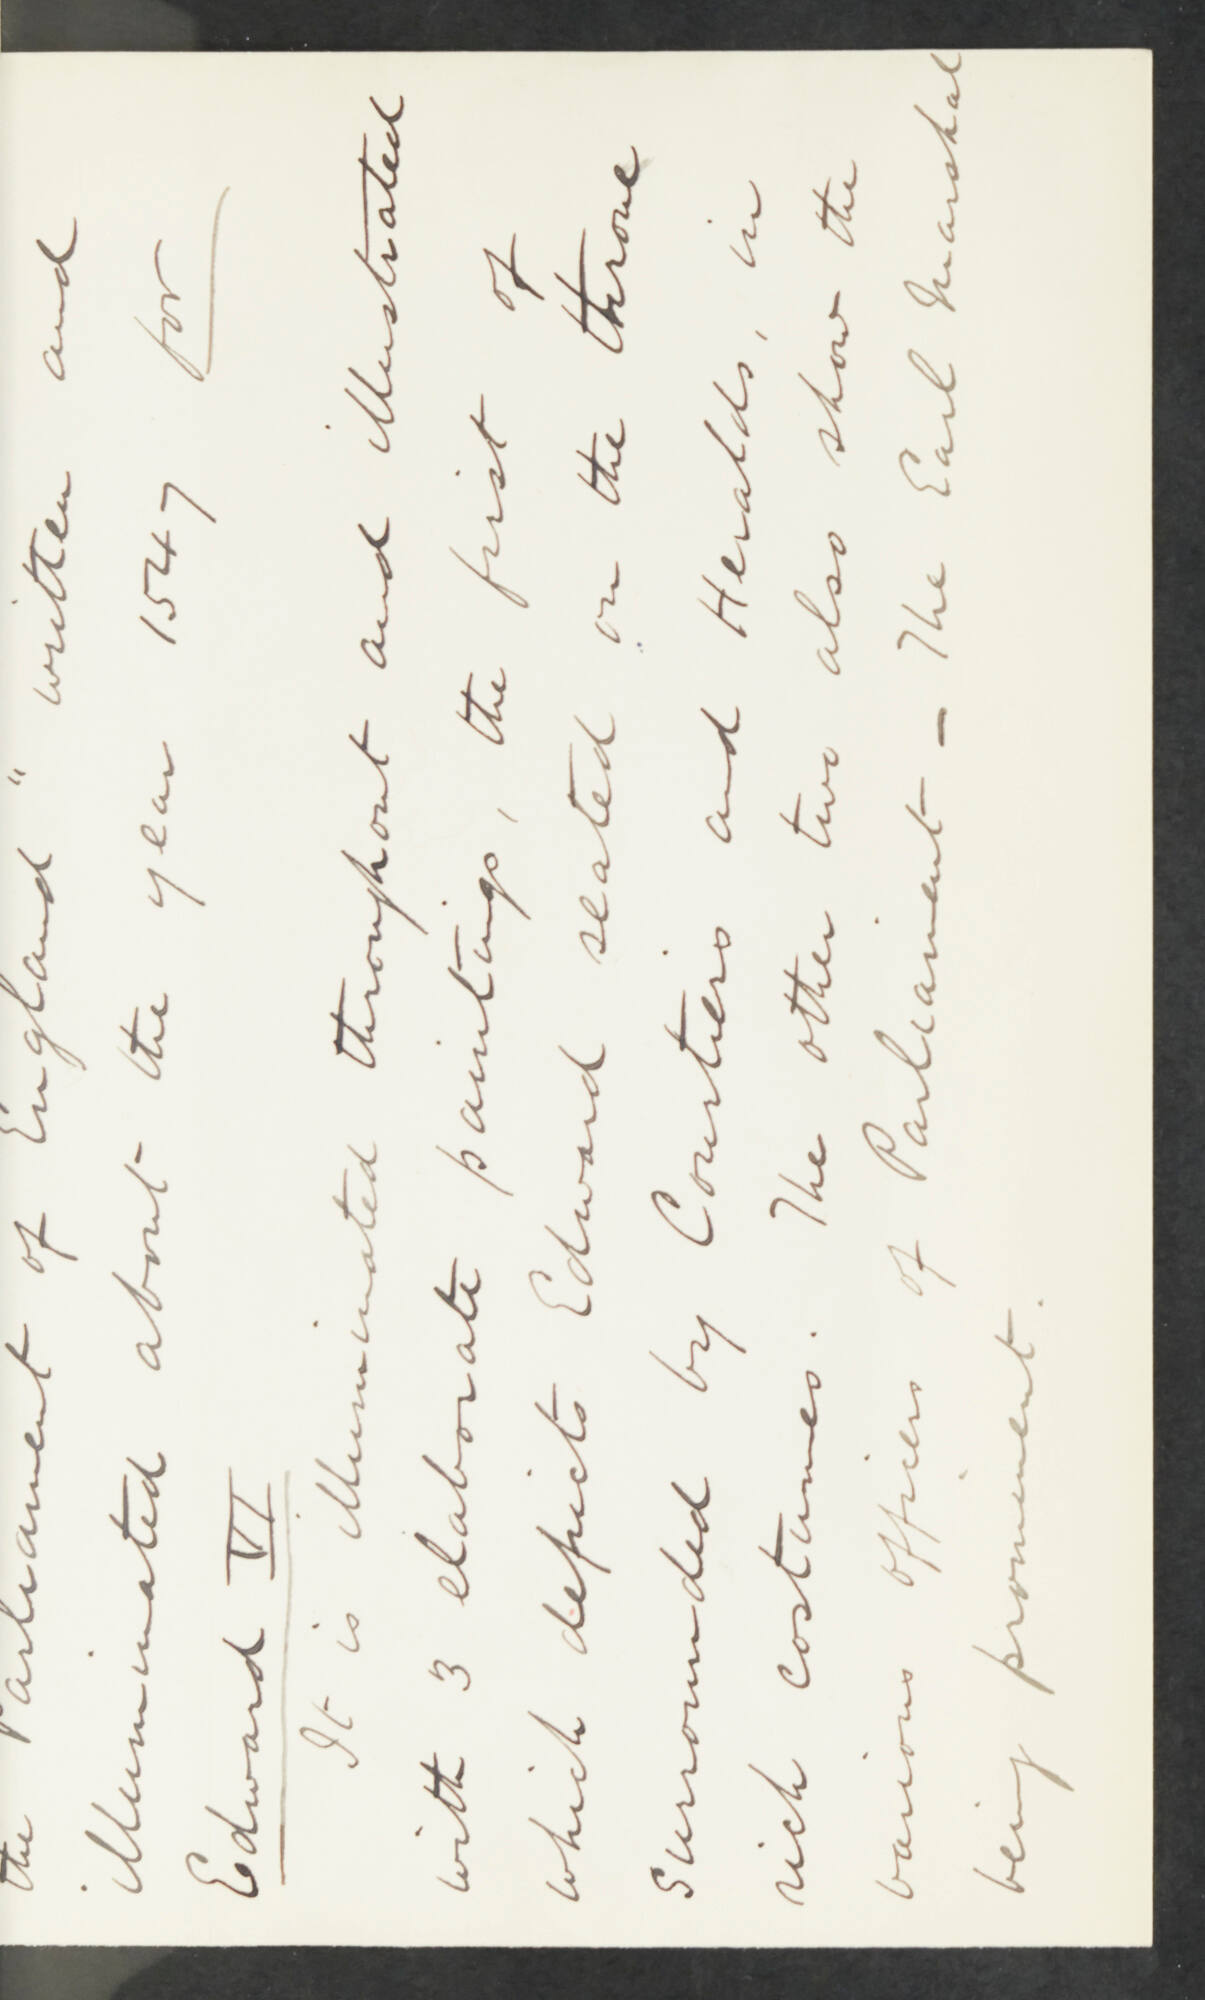 the Parliament of England" written and
illuminated about the year 1547 for
Edward VI
It is illuminated throughout and illustrated
with 3 elaborate paintings, the first of
which depicts Edward seated on the throne
surrounded by Courtiers and Heralds, in
rich costumes. The other two also show the
various officers of Parliament – The Earl Marshal
being prominent.